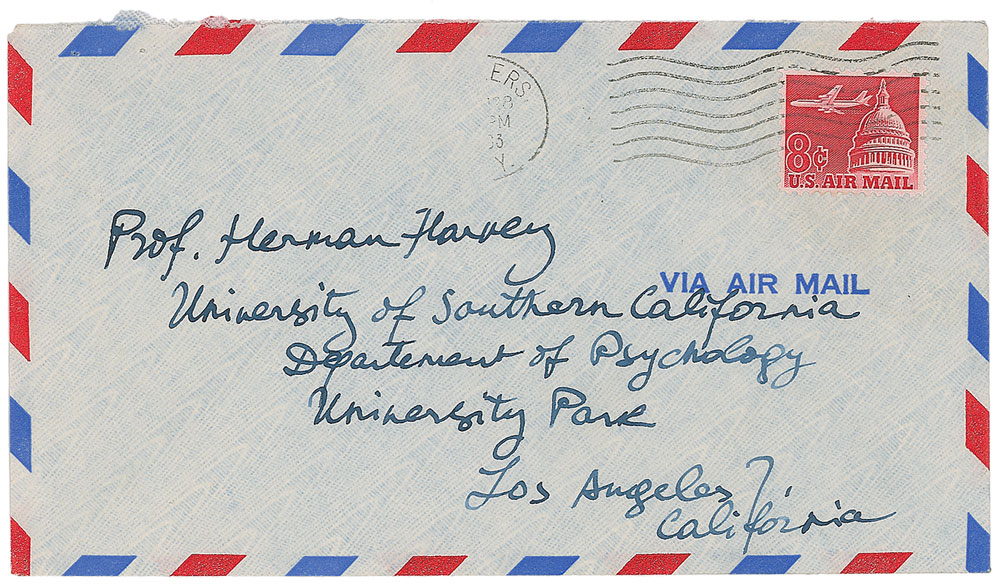 ERS.
PM
Y.
8¢
U.S. AIR MAIL
Prof. Herman Harvey
VIA AIR MAIL
University of Southern California
Departement of Psychology
University Park
Los Angeles 7,
California